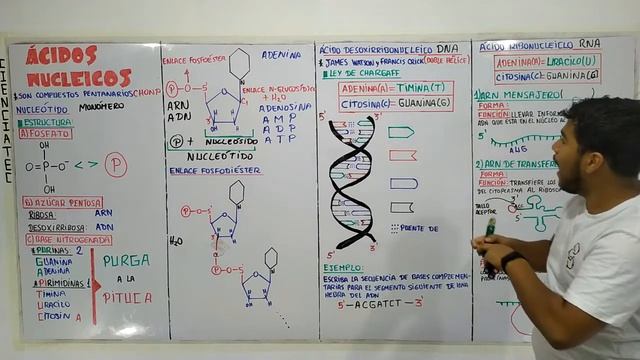 CIENCIATEC
ÁCIDOS
NUCLEICOS
SON COMPUESTOS PENTANARIOS CHONP
NUCLEÓTIDO MONÓMERO
ESTRUCTURA
A) FOSFATO
OH
O=P-O⁻ <-> P
OH
B) AZÚCAR PENTOSA
RIBOSA: ARN
DESOXIRRIBOSA: ADN
C) BASE NITROGENADA
PURINAS: 2
GUANINA
ADENINA
PIRIMIDINAS 1
TIMINA
URACILO
CITOSINA
PURGA
A LA
PITUCA
ENLACE FOSFOÉSTER
ADENINA
P-O-5'
ENLACE N-GLUCOSÍDICO
+ H₂O
ARN
ADN
ADENOSINA
AMP
ADP
ATP
P + NUCLEÓSIDO
NUCLEÓTIDO
ENLACE FOSFODIÉSTER
P-O-5'
H₂O
P-O-5'
ÁCIDO DESOXIRRIBONUCLEICO DNA
JAMES WATSON y FRANCIS CRICK (DOBLE HÉLICE)
LEY DE CHARGAFF
ADENINA(A) = TIMINA(T)
CITOSINA(C) = GUANINA(G)
5' 3'
3' 5'
PUENTE DE
EJEMPLO:
ESCRIBA LA SECUENCIA DE BASES COMPLEMEN-
TARIAS PARA EL SEGMENTO SIGUIENTE DE UNA
HEBRA DEL ADN
5'-ACGATCT-3'
ÁCIDO RIBONUCLEICO RNA
ADENINA(A) = URACILO(U)
CITOSINA(C) = GUANINA(G)
1) ARN MENSAJERO(
FORMA:
FUNCIÓN: LLEVAR INFORM
ADA QUE ESTÁ EN EL NÚCLEO AL
5'
AUG
2) ARN DE TRANSFERE
FORMA:
FUNCIÓN: TRANSFIERE LOS
DEL CITOPLASMA AL RIBOSO
TALLO
ACEPTOR